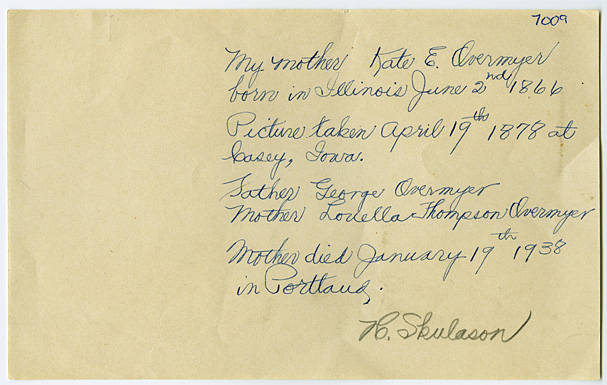 7009
My mother Kate E. Overmyer
born in Illinois June 2nd 1866
Picture taken April 19th 1878 at
Casey, Iowa.
Father George Overmyer
Mother Louella Thompson Overmyer
Mother died January 19th 1938
in Portland.
H. Skulason